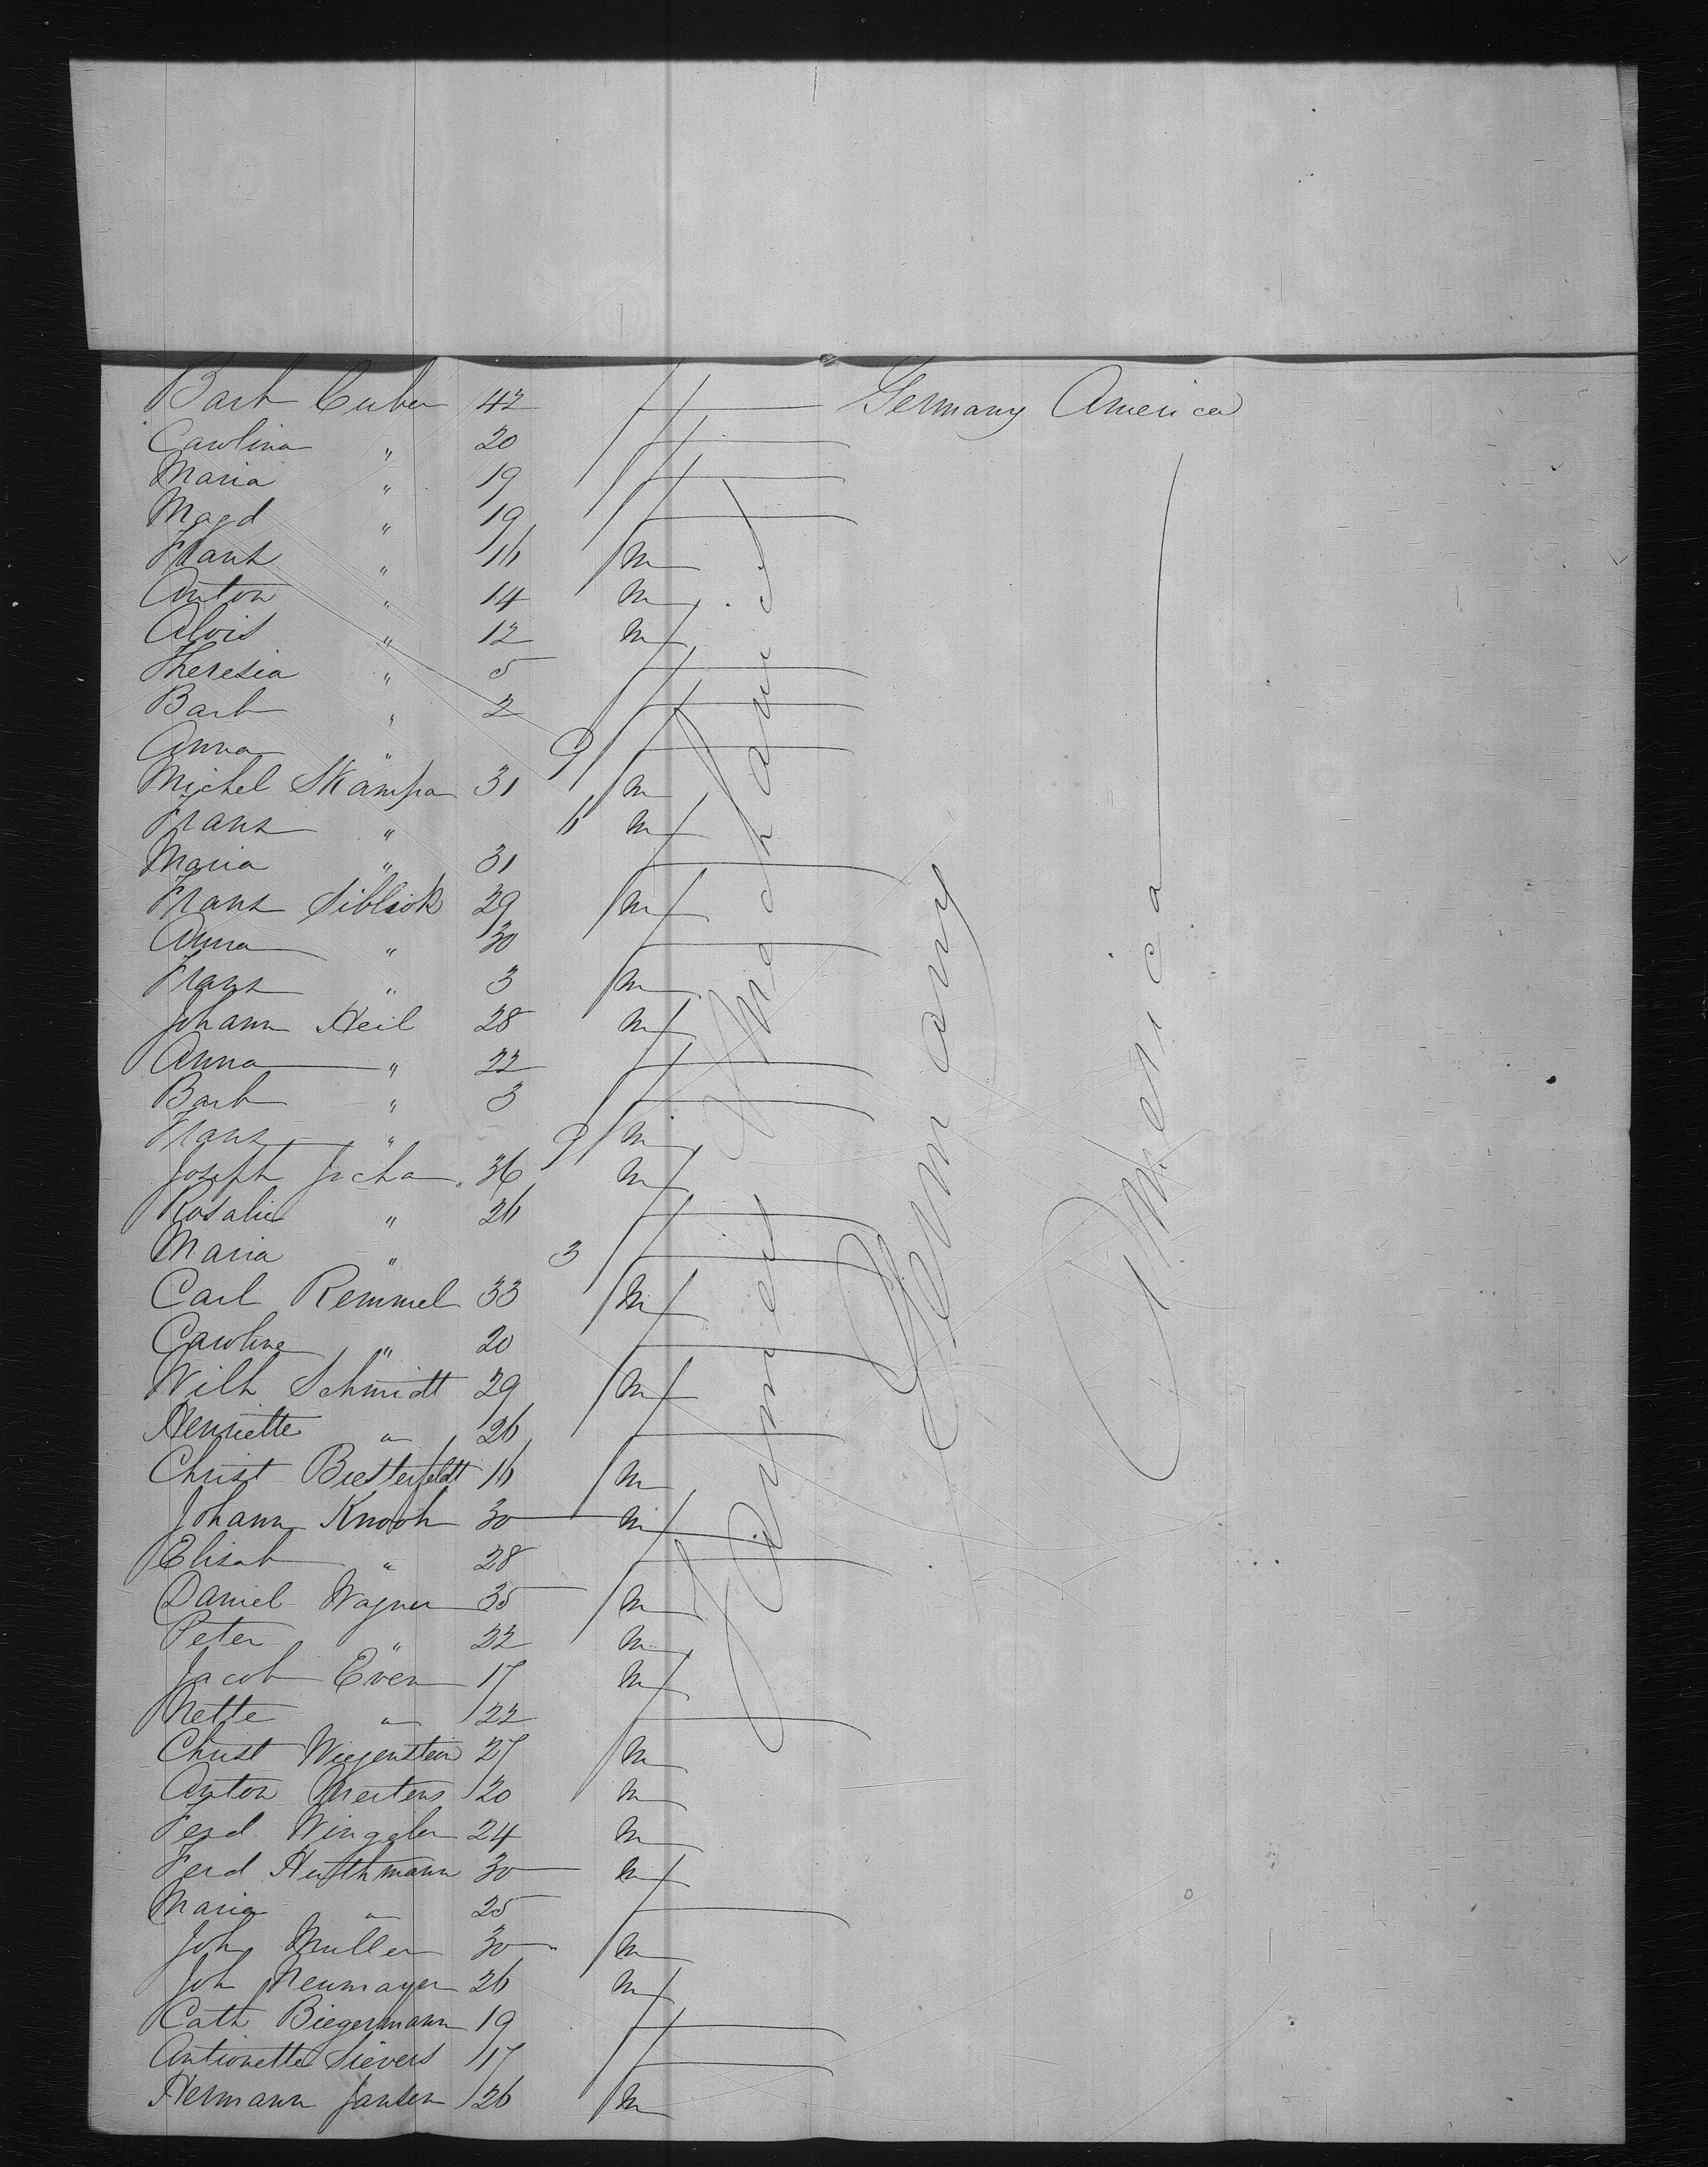 Barb Cuber 42 f Germany America
Carolina " 20 f
Maria " 19 f
Magd " 19 f
Franz " 16 m
Anton " 14 m
Alois " 12 m
Theresia " 5 f
Barb " 2 f
Anna " 9 f
Michel Skampa 31 m
Franz " 6 m
Maria " 31 f
Franz 29 m
Anna " 30 f
Franz " 3 m
Johann Heil 28 m
Anna " 22 f
Barb " 3 f
Franz " 9 m
Joseph Jicha 36 m
Rosalie " 26 f
Maria " 3 f
Carl Remmel 33 m
Caroline " 20 f
Wilh Schmidt 29 m
Henriette " 26 f
Christ Biesterfeldt 16 m
Johann Knooh 30 m
Elisab " 28 f
Daniel Wagner 35 m
Peter " 22 m
Jacob Even 17 m
Nette " 22 f
Christ Wiegenstein 27 m
Anton Mertens 20 m
Ferd Wingaler 24 m
Ferd Huthmann 30 m
Maria " 25 f
Joh Muller 30 m
Joh Neumayer 26 m
Cath Biegermann 19 f
Antionette Sievers 17 f
Hermann Jansen 26 m
Farmer & Mechanist
Germany
America